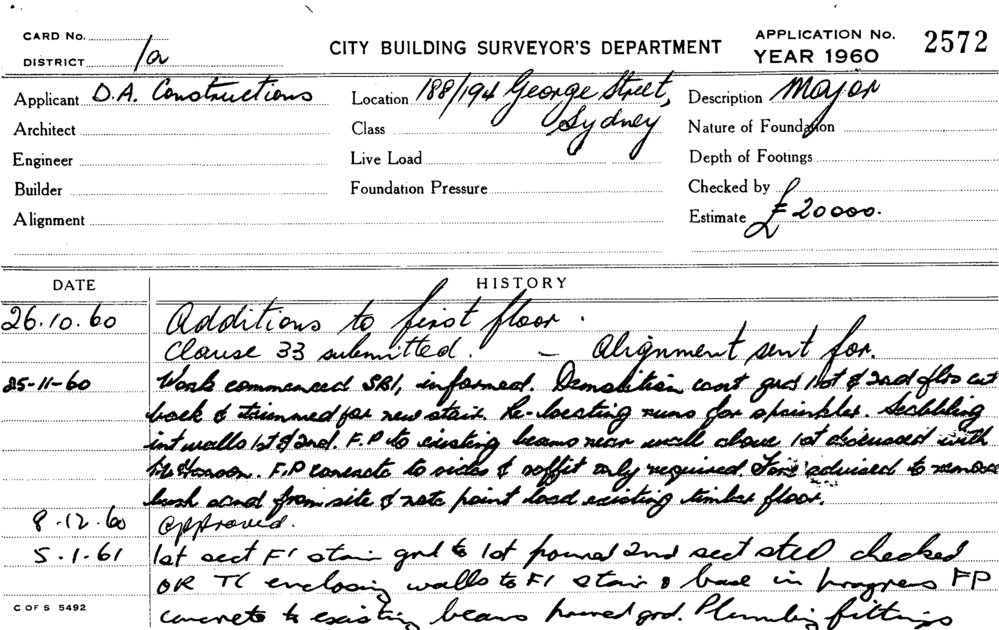 CARD No.
DISTRICT 1a
CITY BUILDING SURVEYOR'S DEPARTMENT
APPLICATION No. 2572
YEAR 1960
Applicant D.A. Constructions
Location 188/194 George Street,
Sydney
Description Major
Architect
Class
Nature of Foundation
Engineer
Live Load
Depth of Footings
Builder
Foundation Pressure
Checked by
Alignment
Estimate £20000.
DATE HISTORY
26.10.60 Additions to first floor.
Clause 33 submitted. - Alignment sent for.
25-11-60 Work commenced SB1, informed. Demolition cont grd 1st & 2nd flrs cut
back & trimmed for new stair. Re-locating runs for sprinkler.
int walls 1st & 2nd. F.P to existing beams near wall above 1st discussed with
F.P concrete to sides & soffit only required. advised to remove
bush sand from site & note point load existing timber floor.
8.12.60 approved.
5.1.61 1st sect F1 stair grd to 1st poured 2nd sect steel checked
OK TC enclosing walls to F1 stair & base in progress FP
concrete to existing beams poured grd. Plumbing fittings
C OF S 5492